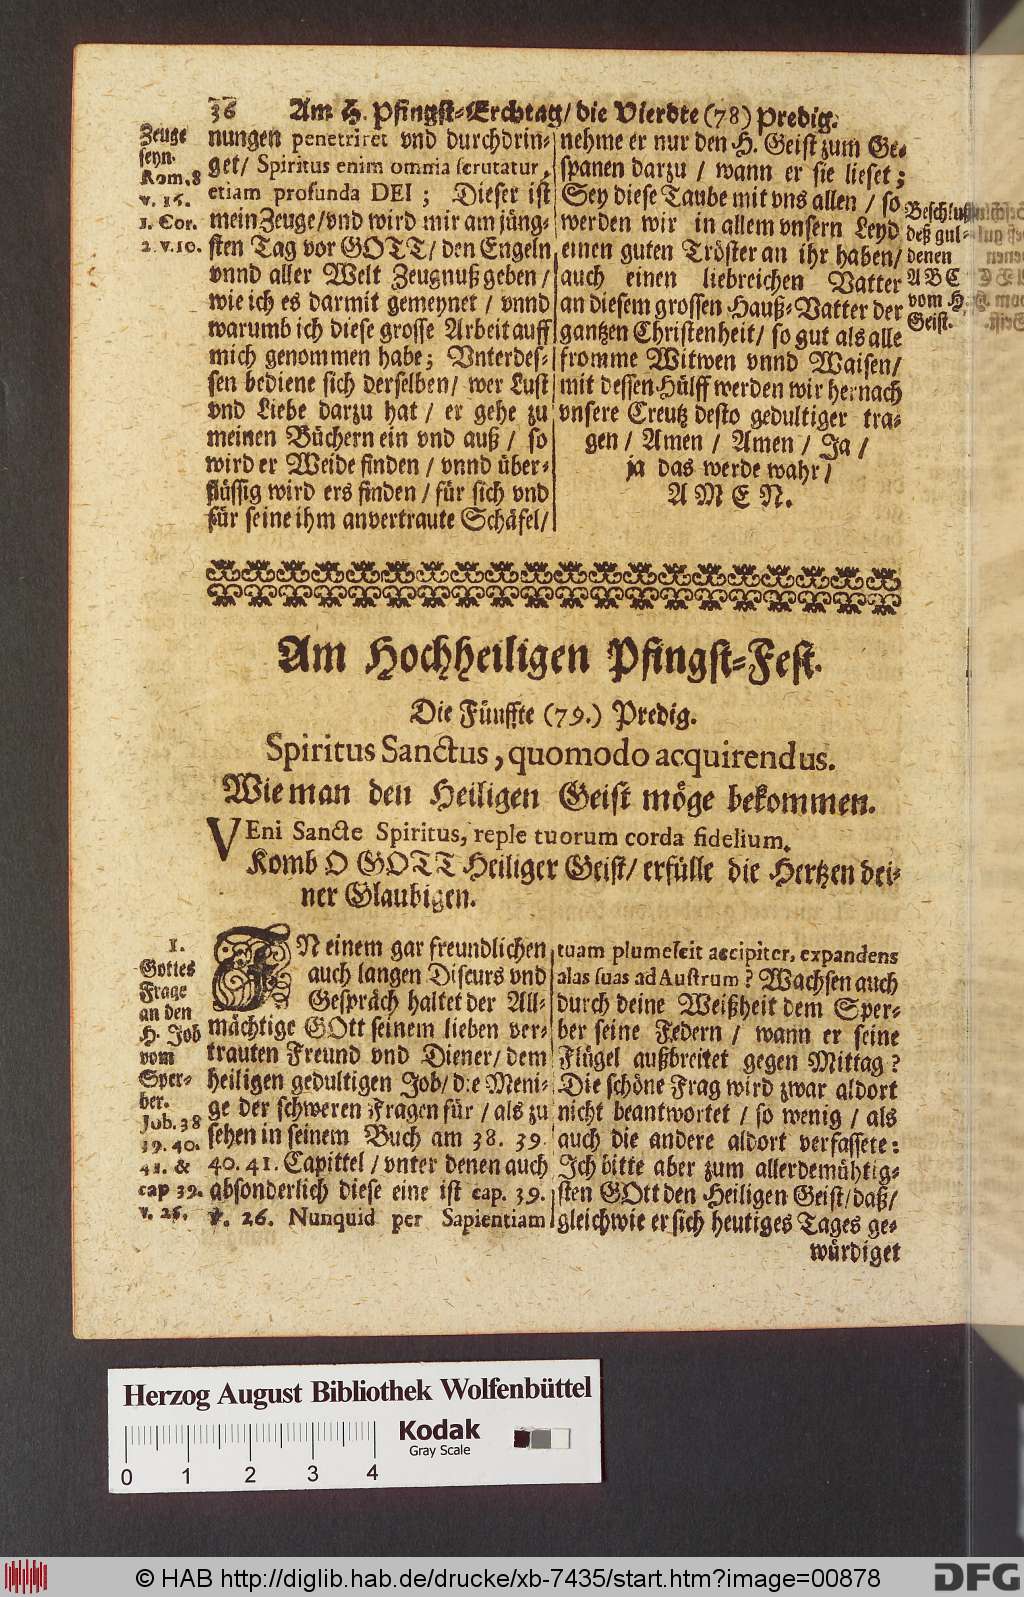 36 Am H. Pfingst-Erchtag/ die Vierdte (78) Predig.
Zeuge
seyn.
Rom. 8
v. 16.
1. Cor.
2. v. 10.
nungen penetriret vnd durchdrin-
get/ Spiritus enim omnia scrutatur,
etiam profunda DEI; Dieser ist
mein Zeuge/ vnd wird mir am jüng-
sten Tag vor GOTT/ den Engeln
vnnd aller Welt Zeugnuß geben/
wie ich es darmit gemeynet/ vnnd
warumb ich diese grosse Arbeit auff
mich genommen habe; Vnterdes-
sen bediene sich derselben/ wer Lust
vnd Liebe darzu hat/ er gehe zu
meinen Büchern ein vnd auß/ so
wird er Weide finden/ vnnd über-
flüssig wird ers finden/ für sich vnd
für seine ihm anvertraute Schäfel/
nehme er nur den H. Geist zum Ge-
spanen darzu/ wann er sie lieset;
Sey diese Taube mit vns allen/ so
werden wir in allem vnsern Leyd
einen guten Tröster an ihr haben/
auch einen liebreichen Vatter
an diesem grossen Hauß-Vatter der
gantzen Christenheit/ so gut als alle
fromme Witwen vnnd Waisen/
mit dessen Hülff werden wir hernach
vnsere Creutz desto gedultiger tra-
gen/ Amen/ Amen/ Ja/
ja das werde wahr/
AMEN.
Beschluß
deß gul-
denen
ABC
vom H.
Geist.
Am Hochheiligen Pfingst-Fest.
Die Fünffte (79.) Predig.
Spiritus Sanctus, quomodo acquirendus.
Wie man den Heiligen Geist möge bekommen.
VEni Sancte Spiritus, reple tuorum corda fidelium.
Komb O GOTT Heiliger Geist/ erfülle die Hertzen dei-
ner Glaubigen.
1.
Gottes
Frage
an den
H. Job
vom
Sper-
ber.
Job. 38
39. 40.
41. &
cap 39.
v. 26.
IN einem gar freundlichen
auch langen Discurs vnd
Gespräch haltet der All-
mächtige GOtt seinem lieben ver-
trauten Freund vnd Diener/ dem
heiligen gedultigen Job/ die Meni-
ge der schweren Fragen für/ als zu
sehen in seinem Buch am 38. 39.
40. 41. Capittel/ vnter denen auch
absonderlich diese eine ist cap. 39.
v. 26. Nunquid per Sapientiam
tuam plumescit accipiter, expandens
alas suas ad Austrum? Wachsen auch
durch deine Weißheit dem Sper-
ber seine Federn/ wann er seine
Flügel außbreitet gegen Mittag?
Die schöne Frag wird zwar aldort
nicht beantwortet/ so wenig/ als
auch die andere aldort verfassete:
Ich bitte aber zum allerdemühtig-
sten GOtt den Heiligen Geist/ daß/
gleichwie er sich heutiges Tages ge-
würdiget
Herzog August Bibliothek Wolfenbüttel
Kodak
Gray Scale
0 1 2 3 4
© HAB http://diglib.hab.de/drucke/xb-7435/start.htm?image=00878
DFG